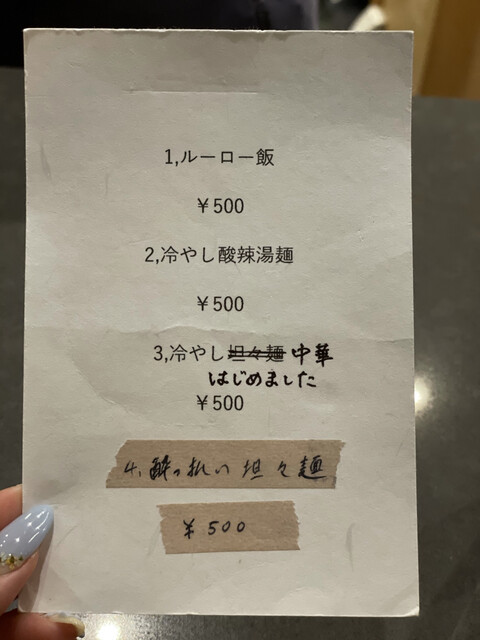 1,ルーロー飯
￥500
2,冷やし酸辣湯麺
￥500
3,冷やし坦々麺 中華
はじめました
￥500
4、酔っ払い 坦々麺
￥500